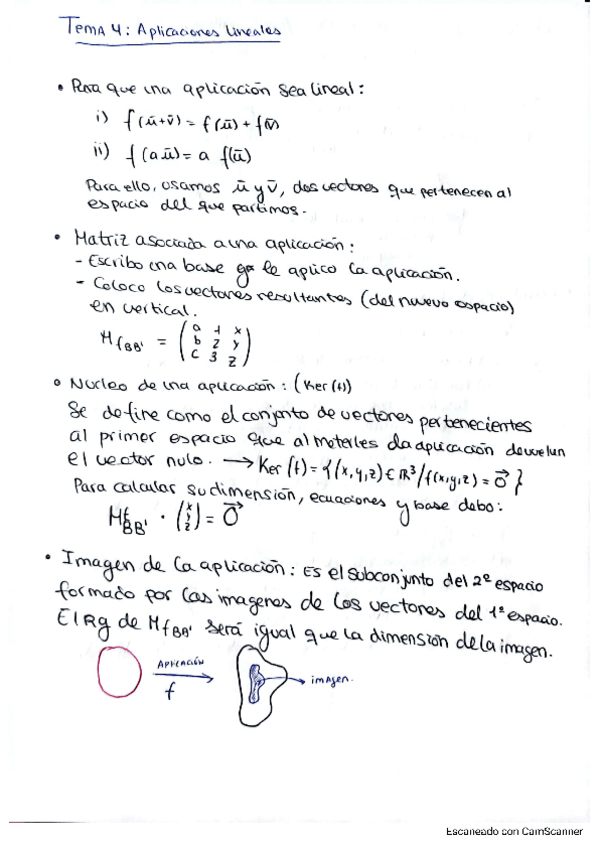 Tema 4: Aplicaciones lineales
• Para que una aplicación sea lineal:
i) f(ū+v̄) = f(ū) + f(v̄)
ii) f(a ū) = a f(ū)
Para ello, usamos ū y v̄, dos vectores que pertenecen al
espacio del que partimos.
• Matriz asociada a una aplicación:
- Escribo una base y le aplico la aplicación.
- Coloco los vectores resultantes (del nuevo espacio)
en vertical.
M f BB' = ( a 1 x
b 2 y
c 3 z )
• Núcleo de una aplicación: (Ker(f))
Se define como el conjunto de vectores pertenecientes
al primer espacio que al meterles la aplicación devuelven
el vector nulo. → Ker(f) = {(x,y,z) ∈ ℝ³/f(x,y,z) = 0⃗ }
Para calcular su dimensión, ecuaciones y base debo:
M f BB' · (x y z) = 0⃗
• Imagen de la aplicación: Es el subconjunto del 2º espacio
formado por las imagenes de los vectores del 1º espacio.
El Rg de M f BB' será igual que la dimensión de la imagen.
APLICACIÓN
f
imagen.
Escaneado con CamScanner